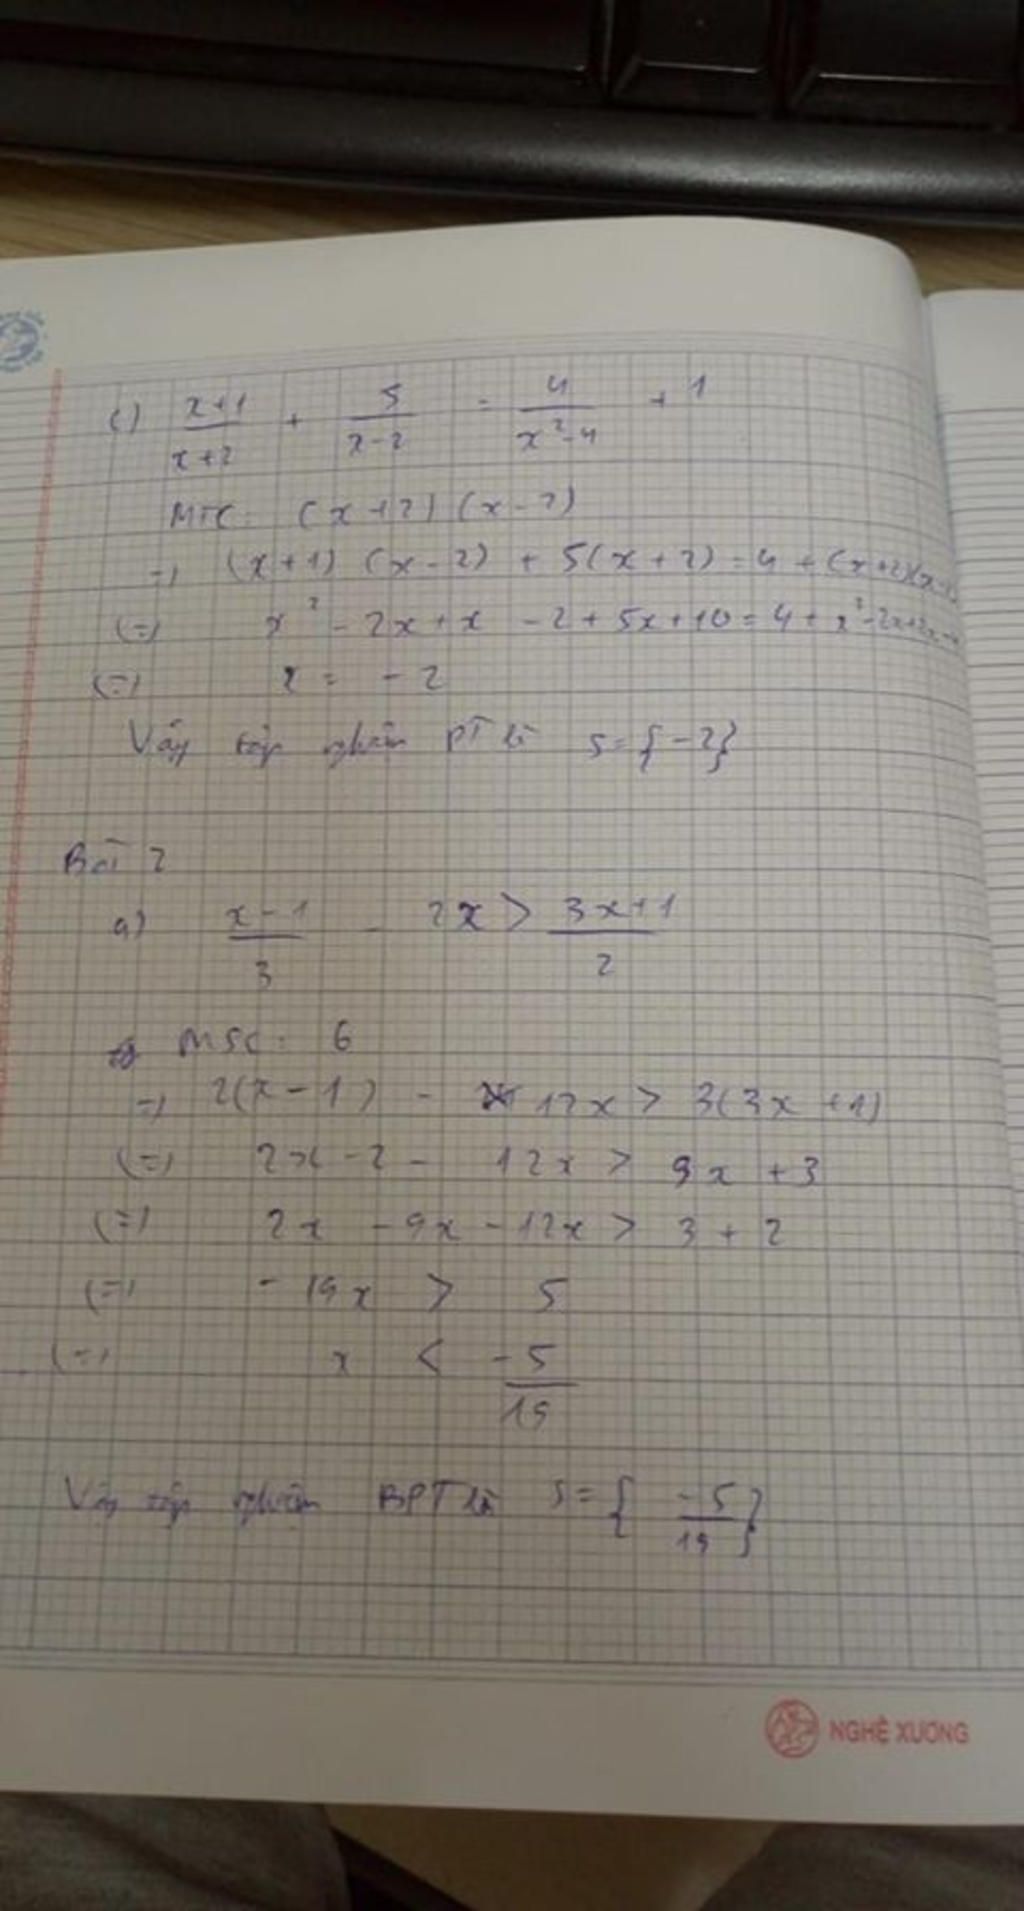 c) x+1/x+2 + 5/x-2 = 4/x²-4 + 1
MTC: (x+2)(x-2)
=> (x+1)(x-2) + 5(x+2) = 4 + (x+2)(x-2)
(=) x² - 2x + x - 2 + 5x + 10 = 4 + x² - 2x + 2x - 4
(=) x = -2
Vậy tập nghiệm PT là S = {-2}
Bài 2
a) x-1/3 - 2x > 3x+1/2
MSC: 6
=> 2(x-1) - 12x > 3(3x+1)
(=) 2x - 2 - 12x > 9x + 3
(=) 2x - 9x - 12x > 3 + 2
(=) -19x > 5
(=) x < -5/19
Vậy tập nghiệm BPT là S = {-5/19}
NGHÈ XUONG